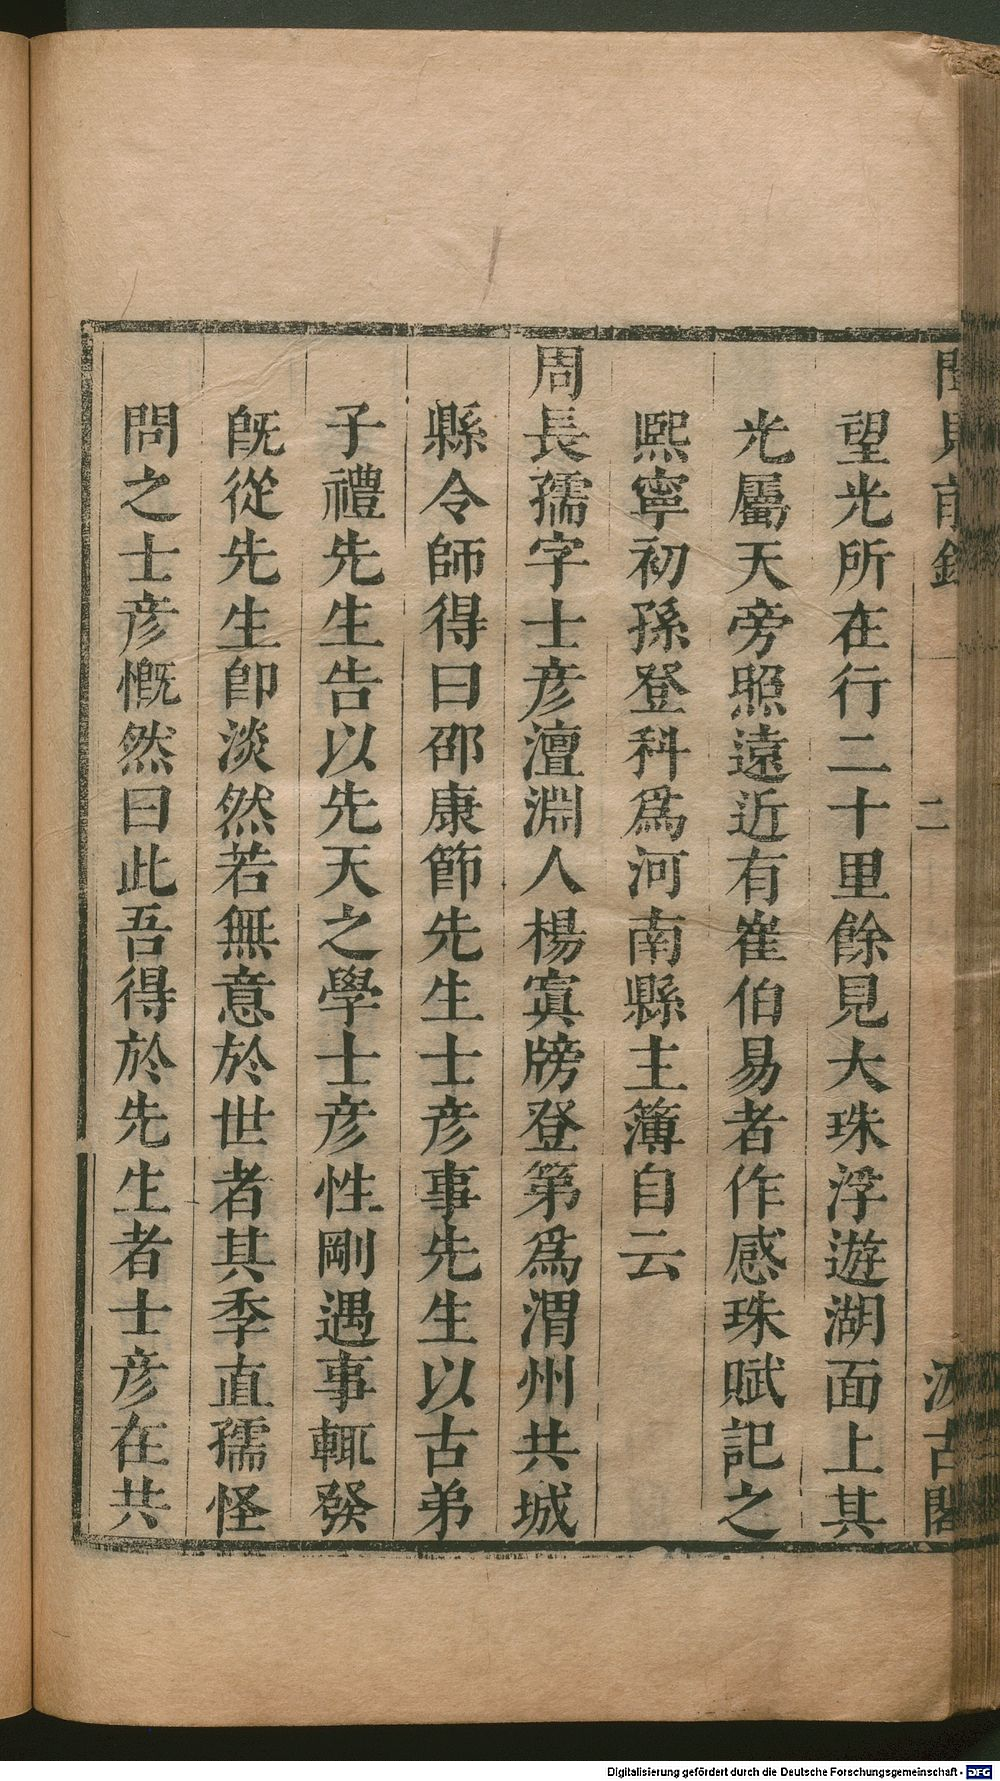 聞見前錄
二
汲古閣
望光所在行二十里餘見大珠浮遊湖面上其
光屬天旁照遠近有崔伯易者作感珠賦記之
熙寧初孫登科爲河南縣主簿自云
周長孺字士彥澶淵人楊寘牓登第爲渭州共城
縣令師得曰邵康節先生士彥事先生以古弟
子禮先生告以先天之學士彥性剛遇事輒發
旣從先生卽淡然若無意於世者其季直孺怪
問之士彥慨然曰此吾得於先生者士彥在共
Digitalisierung gefördert durch die Deutsche Forschungsgemeinschaft - DFG